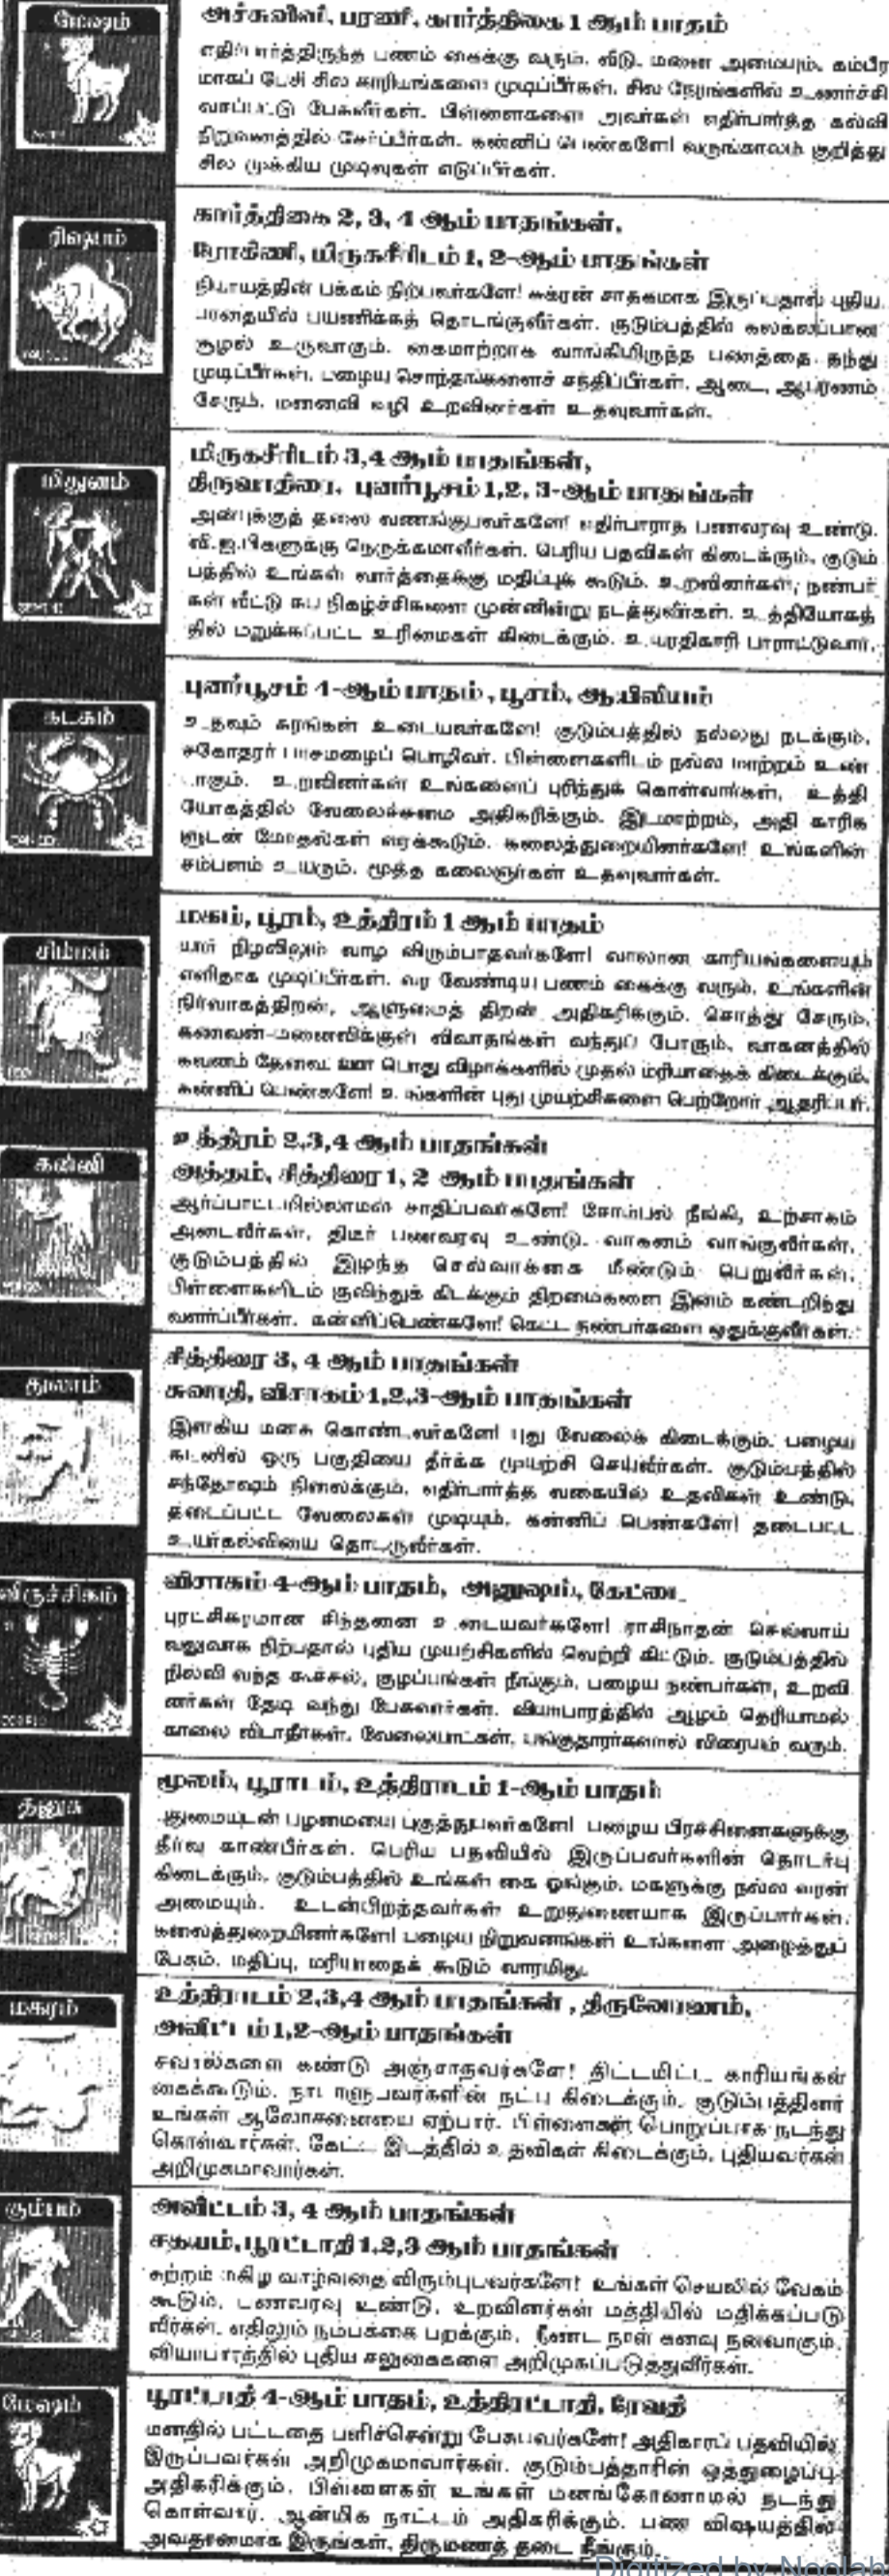 மேஷம்
அச்சுவினி, பரணி, கார்த்திகை 1 ஆம் பாதம்
எதிர்பார்த்திருந்த பணம் கைக்கு வரும். வீடு, மனை அமையும். கம்பீர
மாகப் பேசி சில காரியங்களை முடிப்பீர்கள். சில நேரங்களில் உணர்ச்சி
வசப்பட்டு பேசுவீர்கள். பிள்ளைகளை அவர்கள் எதிர்பார்த்த கல்வி
நிறுவனத்தில் சேர்ப்பீர்கள். கன்னிப் பெண்களே! வருங்காலம் குறித்து
சில முக்கிய முடிவுகள் எடுப்பீர்கள்.
ரிஷபம்
கார்த்திகை 2, 3, 4 ஆம் பாதங்கள்,
ரோகிணி, மிருகசீரிடம் 1, 2-ஆம் பாதங்கள்
நியாயத்தின் பக்கம் நிற்பவர்களே! சுக்ரன் சாதகமாக இருப்பதால் புதிய
பாதையில் பயணிக்கத் தொடங்குவீர்கள். குடும்பத்தில் கலகலப்பான
சூழல் உருவாகும். கைமாற்றாக வாங்கியிருந்த பணத்தை தந்து
முடிப்பீர்கள். பழைய சொந்தங்களைச் சந்திப்பீர்கள். ஆடை, ஆபரணம்
சேரும். மனைவி வழி உறவினர்கள் உதவுவார்கள்.
மிதுனம்
மிருகசீரிடம் 3,4 ஆம் பாதங்கள்,
திருவாதிரை, புனர்பூசம் 1,2, 3-ஆம் பாதங்கள்
அன்புக்குத் தலை வணங்குபவர்களே! எதிர்பாராத பணவரவு உண்டு.
வி.ஐ.பிகளுக்கு நெருக்கமாவீர்கள். பெரிய பதவிகள் கிடைக்கும். குடும்
பத்தில் உங்கள் வார்த்தைக்கு மதிப்புக் கூடும். உறவினர்கள், நண்பர்
கள் வீட்டு சுப நிகழ்ச்சிகளை முன்னின்று நடத்துவீர்கள். உத்தியோகத்
தில் மறுக்கப்பட்ட உரிமைகள் கிடைக்கும். உயரதிகாரி பாராட்டுவார்.
கடகம்
புனர்பூசம் 4-ஆம் பாதம், பூசம், ஆயிலியம்
உதவும் கரங்கள் உடையவர்களே! குடும்பத்தில் நல்லது நடக்கும்.
சகோதரர் பாசமழைப் பொழிவர். பிள்ளைகளிடம் நல்ல மாற்றம் உண்
டாகும். உறவினர்கள் உங்களைப் புரிந்துக் கொள்வார்கள். உத்தி
யோகத்தில் வேலைச்சுமை அதிகரிக்கும். இடமாற்றம், அதி காரிக
ளுடன் மோதல்கள் வரக்கூடும். கலைத்துறையினர்களே! உங்களின்
சம்பளம் உயரும். மூத்த கலைஞர்கள் உதவுவார்கள்.
சிம்மம்
மகம், பூரம், உத்திரம் 1 ஆம் பாதம்
யார் நிழலிலும் வாழ விரும்பாதவர்களே! சவாலான காரியங்களையும்
எளிதாக முடிப்பீர்கள். வர வேண்டிய பணம் கைக்கு வரும். உங்களின்
நிர்வாகத்திறன், ஆளுமைத் திறன் அதிகரிக்கும். சொத்து சேரும்.
கணவன்-மனைவிக்குள் விவாதங்கள் வந்துப் போகும். வாகனத்தில்
கவனம் தேவை. பொது விழாக்களில் முதல் மரியாதைக் கிடைக்கும்.
கன்னிப் பெண்களே! உங்களின் புது முயற்சிகளை பெற்றோர் ஆதரிப்பர்.
கன்னி
உத்திரம் 2,3,4 ஆம் பாதங்கள்
அத்தம், சித்திரை 1, 2 ஆம் பாதங்கள்
ஆர்ப்பாட்டமில்லாமல் சாதிப்பவர்களே! சோம்பல் நீங்கி, உற்சாகம்
அடைவீர்கள். திடீர் பணவரவு உண்டு. வாகனம் வாங்குவீர்கள்.
குடும்பத்தில் இழந்த செல்வாக்கை மீண்டும் பெறுவீர்கள்.
பிள்ளைகளிடம் குவிந்துக் கிடக்கும் திறமைகளை இனம் கண்டறிந்து
வளர்ப்பீர்கள். கன்னிப்பெண்களே! கெட்ட நண்பர்களை ஒதுக்குவீர்கள்.
துலாம்
சித்திரை 3, 4 ஆம் பாதங்கள்
சுவாதி, விசாகம் 1,2,3-ஆம் பாதங்கள்
இளகிய மனசு கொண்டவர்களே! புது வேலைக் கிடைக்கும். பழைய
கடனில் ஒரு பகுதியை தீர்க்க முயற்சி செய்வீர்கள். குடும்பத்தில்
சந்தோஷம் நிலைக்கும். எதிர்பார்த்த வகையில் உதவிகள் உண்டு.
தடைப்பட்ட வேலைகள் முடியும். கன்னிப் பெண்களே! தடைபட்ட
உயர்கல்வியை தொடருவீர்கள்.
விருச்சிகம்
விசாகம் 4-ஆம் பாதம், அனுஷம், கேட்டை
புரட்சிகரமான சிந்தனை உடையவர்களே! ராசிநாதன் செவ்வாய்
வலுவாக நிற்பதால் புதிய முயற்சிகளில் வெற்றி கிட்டும். குடும்பத்தில்
நிலவி வந்த கூச்சல், குழப்பங்கள் நீங்கும். பழைய நண்பர்கள், உறவி
னர்கள் தேடி வந்து பேசுவார்கள். வியாபாரத்தில் ஆழம் தெரியாமல்
காலை விடாதீர்கள். வேலையாட்கள், பங்குதாரர்களால் விரையம் வரும்.
தனுசு
மூலம், பூராடம், உத்திராடம் 1-ஆம் பாதம்
புதுமையுடன் பழமையை புகுத்துபவர்களே! பழைய பிரச்சினைகளுக்கு
தீர்வு காண்பீர்கள். பெரிய பதவியில் இருப்பவர்களின் தொடர்பு
கிடைக்கும். குடும்பத்தில் உங்கள் கை ஓங்கும். மகளுக்கு நல்ல வரன்
அமையும். உடன்பிறந்தவர்கள் உறுதுணையாக இருப்பார்கள்.
கலைத்துறையினர்களே! பழைய நிறுவனங்கள் உங்களை அழைத்துப்
பேசும். மதிப்பு, மரியாதைக் கூடும் வாரமிது.
மகரம்
உத்திராடம் 2,3,4 ஆம் பாதங்கள், திருவோணம்,
அவிட்டம் 1,2-ஆம் பாதங்கள்
சவால்களை கண்டு அஞ்சாதவர்களே! திட்டமிட்ட காரியங்கள்
கைக்கூடும். நாடாளுபவர்களின் நட்பு கிடைக்கும். குடும்பத்தினர்
உங்கள் ஆலோசனையை ஏற்பார். பிள்ளைகள் பொறுப்பாக நடந்து
கொள்வார்கள். கேட்ட இடத்தில் உதவிகள் கிடைக்கும். புதியவர்கள்
அறிமுகமாவார்கள்.
கும்பம்
அவிட்டம் 3, 4 ஆம் பாதங்கள்
சதயம், பூரட்டாதி 1,2,3 ஆம் பாதங்கள்
சுற்றம் மகிழ வாழ்வதை விரும்புபவர்களே! உங்கள் செயலில் வேகம்
கூடும். பணவரவு உண்டு. உறவினர்கள் மத்தியில் மதிக்கப்படு
வீர்கள். எதிலும் நம்பக்கை பறக்கும். நீண்ட நாள் கனவு நனவாகும்.
வியாபாரத்தில் புதிய சலுகைகளை அறிமுகப்படுத்துவீர்கள்.
மேஷம்
பூரட்டாதி 4-ஆம் பாதம், உத்திரட்டாதி, ரேவதி
மனதில் பட்டதை பளிச்சென்று பேசுபவர்களே! அதிகாரப் பதவியில்
இருப்பவர்கள் அறிமுகமாவார்கள். குடும்பத்தாரின் ஒத்துழைப்பு
அதிகரிக்கும். பிள்ளைகள் உங்கள் மனங்கோணாமல் நடந்து
கொள்வார். ஆன்மிக நாட்டம் அதிகரிக்கும். பண விஷயத்தில்
அவதானமாக இருங்கள். திருமணத் தடை நீங்கும்.
Digitized by Noolah